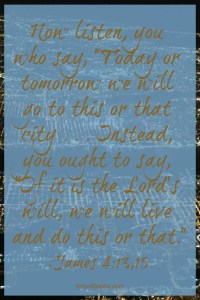 Now listen, you
who say, "Today or
tomorrow we will
go to this or that
city Instead,
you ought to say,
"If it is the Lord's
will, we will live
and do this or that."
James 4:13,15